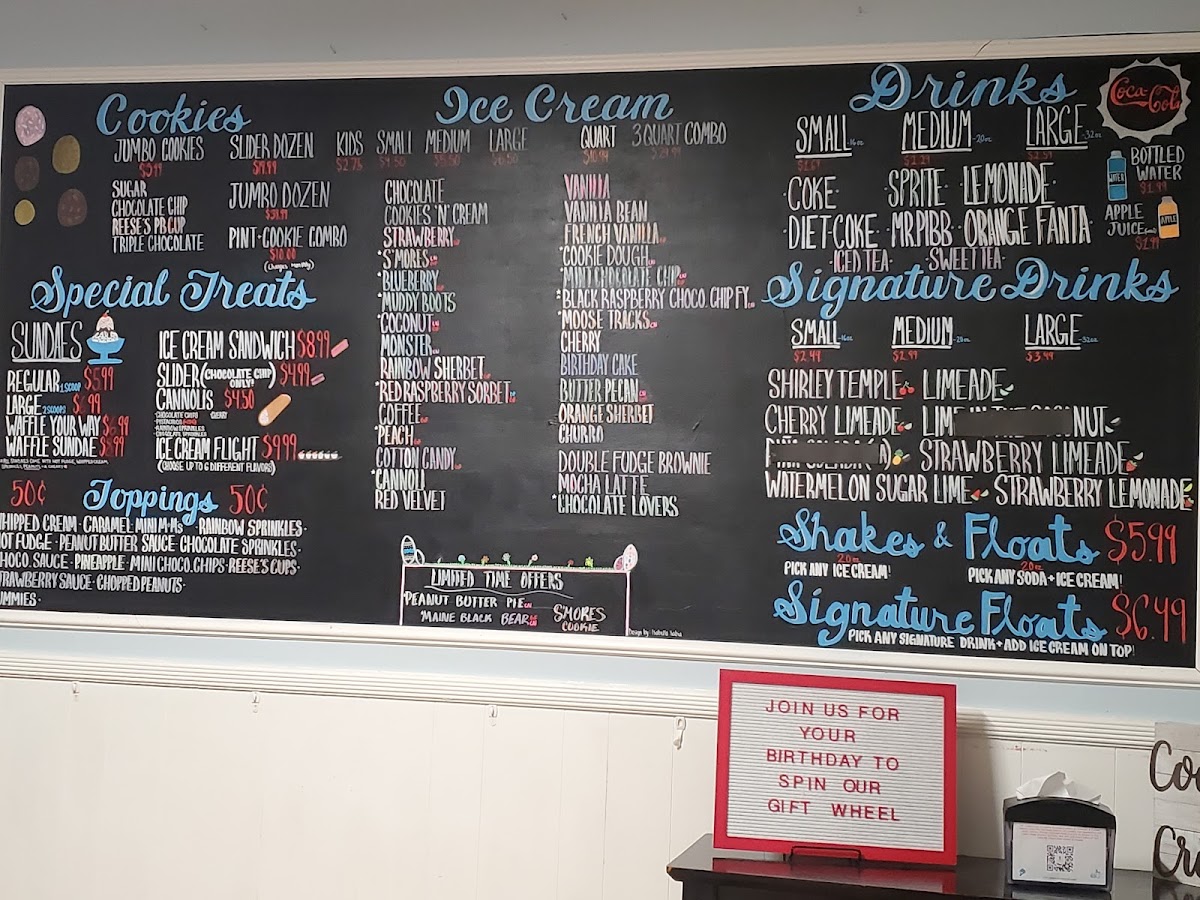 Cookies
JUMBO COOKIES
SLIDER DOZEN
SUGAR
CHOCOLATE CHIP
REESE'S PB CUP
TRIPLE CHOCOLATE
JUMBO DOZEN
PINT·COOKIE COMBO
$10.00
Ice Cream
KIDS SMALL MEDIUM LARGE QUART 3 QUART COMBO
$2.75 $4.50
CHOCOLATE
COOKIES 'N' CREAM
STRAWBERRY
S'MORES
*BLUEBERRY
*MUDDY BOOTS
COCONUT
MONSTER
RAINBOW SHERBET
*RED RASPBERRY SORBET
COFFEE
*PEACH
COTTON CANDY
*CANNOLI
RED VELVET
VANILLA
VANILLA BEAN
FRENCH VANILLA
*COOKIE DOUGH
*MINT CHOCOLATE CHIP
*BLACK RASPBERRY CHOCO. CHIP FY
*MOOSE TRACKS
CHERRY
BIRTHDAY CAKE
BUTTER PECAN
ORANGE SHERBET
CHURRO
DOUBLE FUDGE BROWNIE
MOCHA LATTE
*CHOCOLATE LOVERS
LIMITED TIME OFFERS
PEANUT BUTTER PIE
MAINE BLACK BEAR
S'MORES
COOKIE
Special Treats
SUNDAES
REGULAR 1 SCOOP
LARGE 2 SCOOPS
WAFFLE YOUR WAY
WAFFLE SUNDAE
ICE CREAM SANDWICH $8.99
SLIDER (CHOCOLATE CHIP ONLY!) $4.99
CANNOLIS $4.50
·CHOCOLATE CHIPS
·RAINBOW SPRINKLES
·CHOCOLATE SPRINKLES
ICE CREAM FLIGHT $9.99
(CHOOSE UP TO 6 DIFFERENT FLAVORS)
50¢ Toppings 50¢
WHIPPED CREAM · CARAMEL MINI M·Ms · RAINBOW SPRINKLES·
HOT FUDGE · PEANUT BUTTER SAUCE · CHOCOLATE SPRINKLES·
CHOCO. SAUCE · PINEAPPLE · MINI CHOCO. CHIPS · REESE'S CUPS·
STRAWBERRY SAUCE · CHOPPED PEANUTS·
UMMIES·
Drinks
Coca-Cola
SMALL 16oz MEDIUM 20oz LARGE 32oz
COKE · SPRITE · LEMONADE·
·DIET COKE · MR PIBB · ORANGE FANTA·
·ICED TEA· ·SWEET TEA·
WATER
BOTTLED
WATER
$1.99
APPLE
JUICE
APPLE
Signature Drinks
SMALL 16oz MEDIUM 20oz LARGE 32oz
$2.49 $2.99 $3.99
SHIRLEY TEMPLE LIMEADE
CHERRY LIMEADE LIM NUT
STRAWBERRY LIMEADE
WATERMELON SUGAR LIME STRAWBERRY LEMONADE
Shakes & Floats $5.99
20oz 20oz
PICK ANY ICE CREAM! PICK ANY SODA + ICE CREAM!
Signature Floats $6.49
PICK ANY SIGNATURE DRINK + ADD ICE CREAM ON TOP!
JOIN US FOR
YOUR
BIRTHDAY TO
SPIN OUR
GIFT WHEEL
Coo
Cre